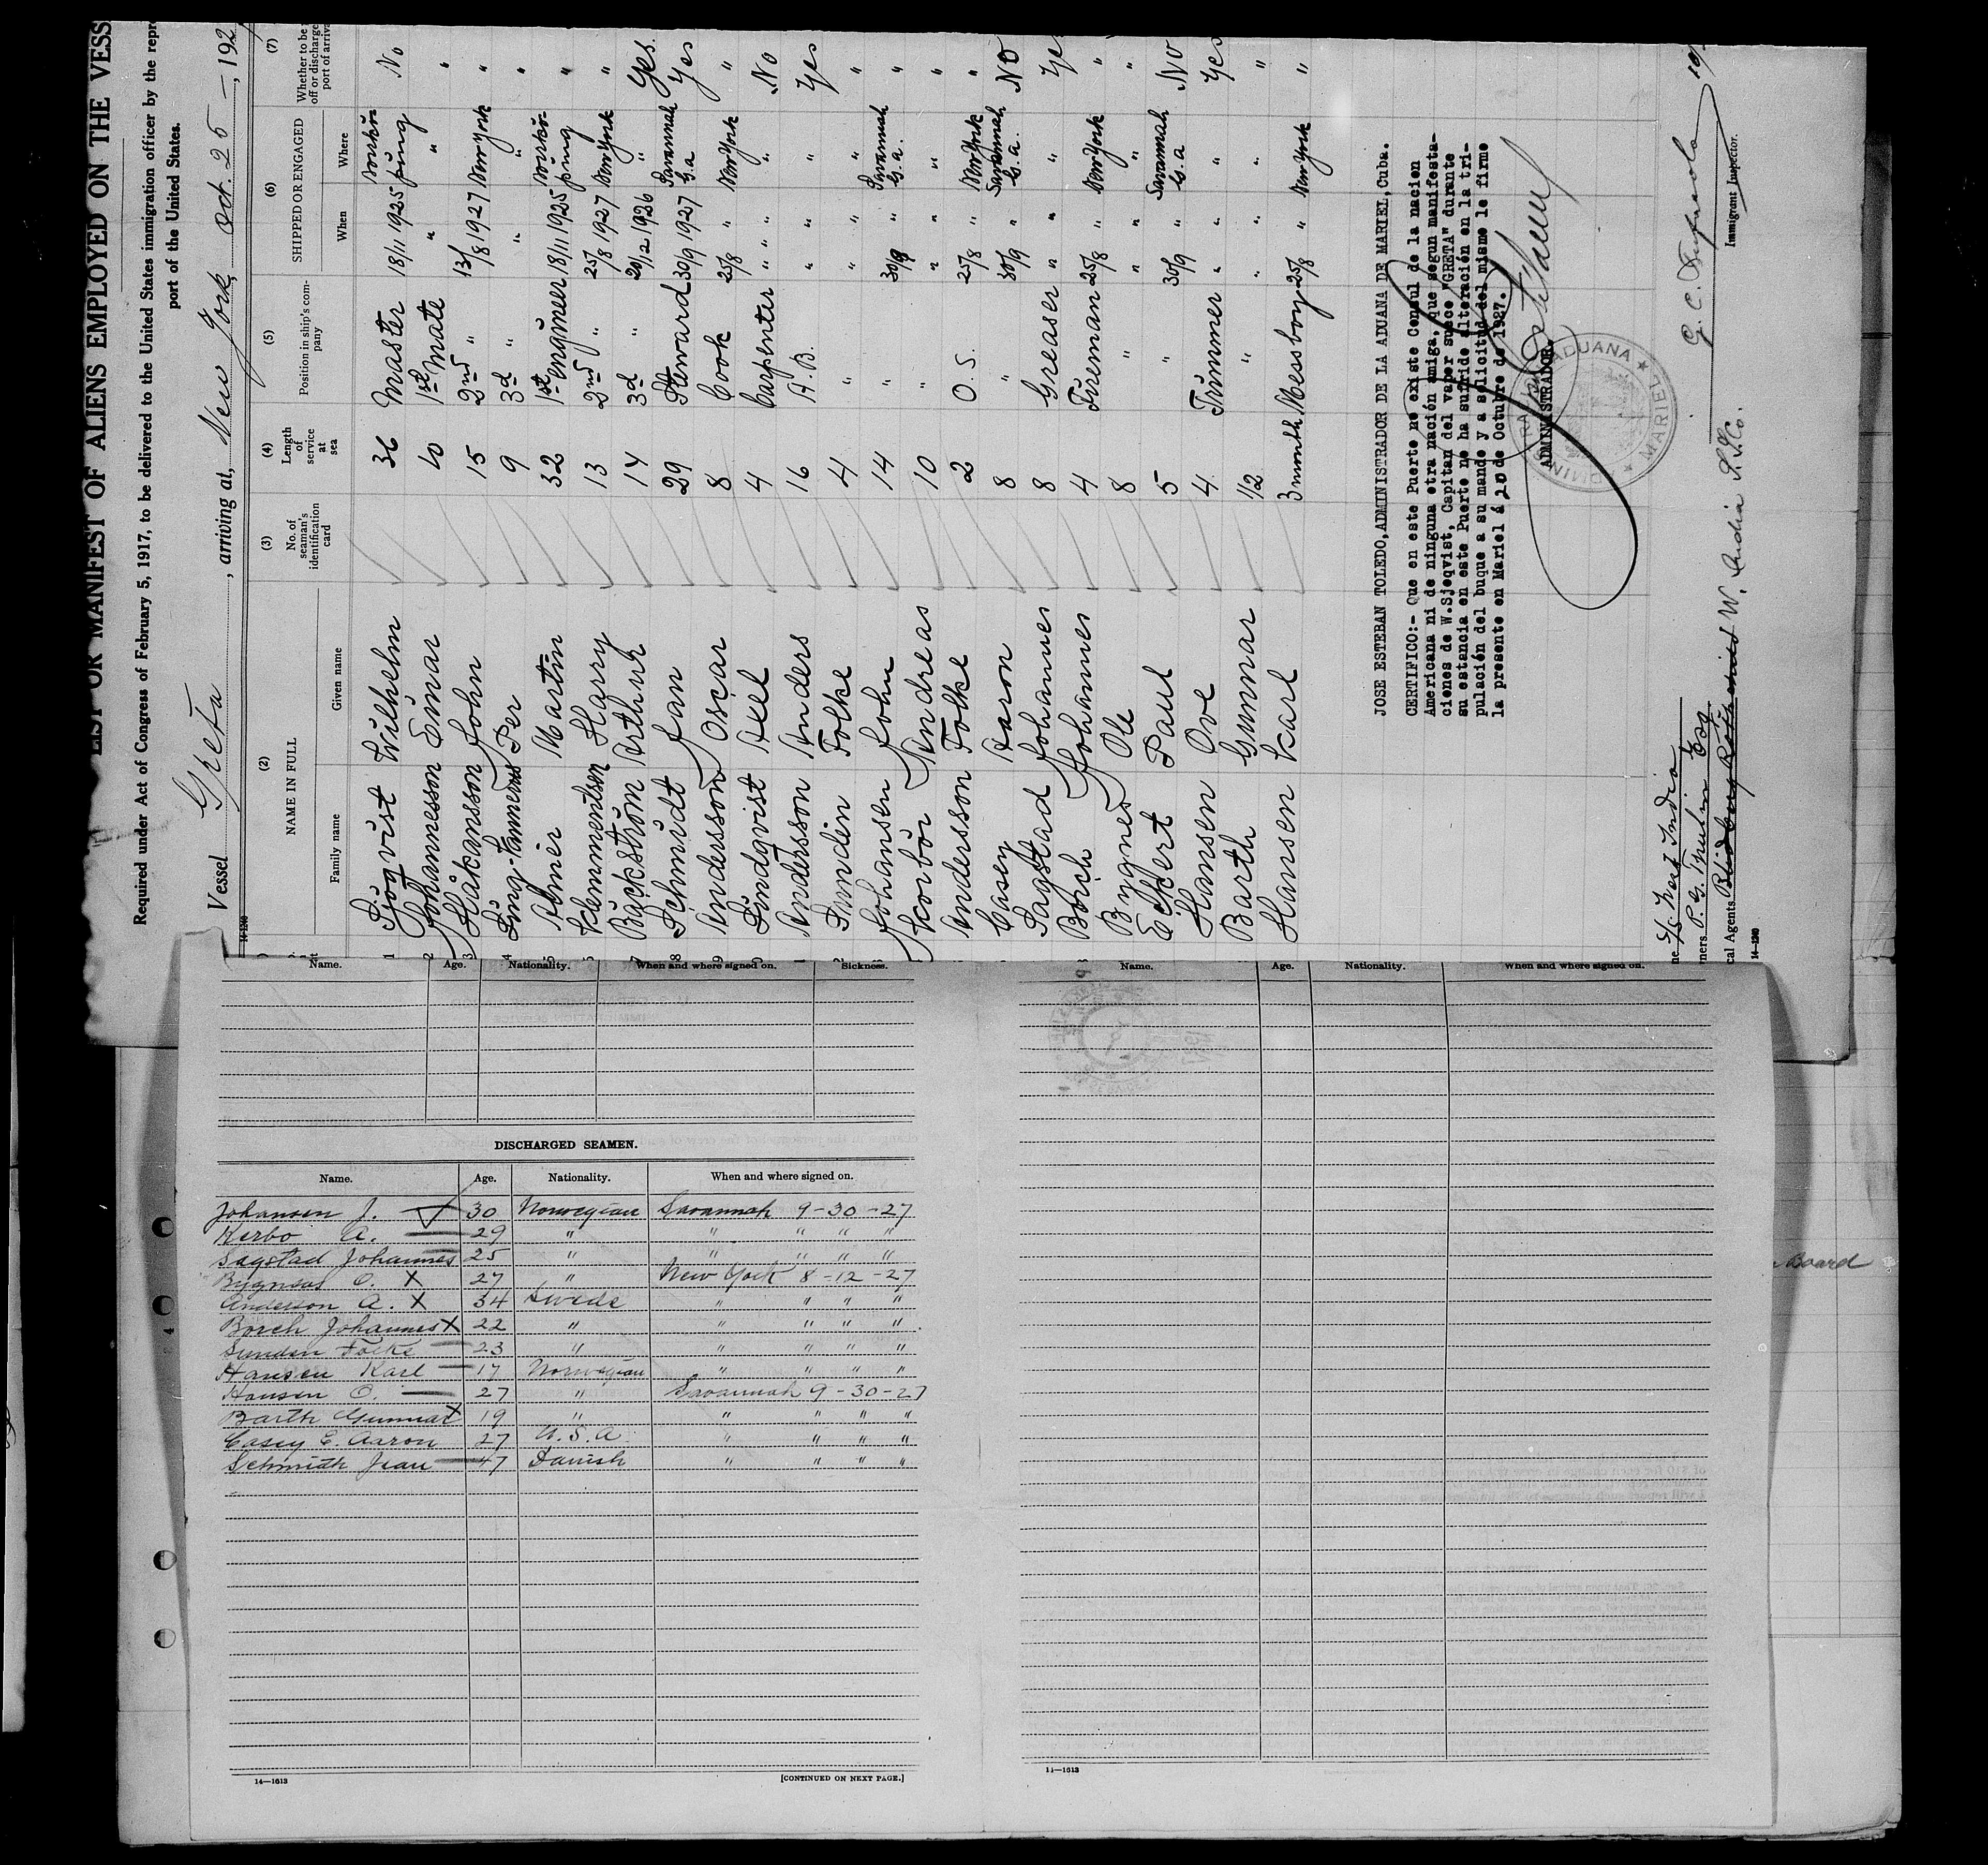 LIST OR MANIFEST OF ALIENS EMPLOYED ON THE VESS
Required under Act of Congress of February 5, 1917, to be delivered to the United States immigration officer by the repr
port of the United States.
Vessel Greta, arriving at, New York, Oct. 25 -, 192
14-1240
(2) (3) (4) (5) (6) (7)
NAME IN FULL No. of seaman's identification card Length of service at sea Position in ship's com-pany SHIPPED OR ENGAGED Whether to be off or discharge port of arriva
Family name Given name When Where
1 Sjöqvist Wilhelm 36 Master 18/11 1925 No
2 Johannesson Einar 10 1st Mate " " "
3 Håkansson John 15 2nd " 13/8 1927 New York "
4 Ling-Vannerus Per 9 3d " " " "
5 Almér Martin 32 1st engineer 18/11 1925 "
Klemmendsen Harry 13 2nd " 25/8 1927 New York "
7 Bäckström Arthur 14 3d " 20/12 1926 " Yes.
8 Schmidt Jan 29 Steward 30/9 1927 Savannah Ga Yes
9 Andersson Oscar 8 Cook 25/8 " New York "
Lindqvist Axel 4 Carpenter " " " No
1 Andersson Anders 16 A.B. " " " Yes
2 Sundén Folke 4 " " " " "
Johansen John 14 " 30/9 " Savannah Ga. "
Skorbör Andreas 10 " " " " "
Andersson Folke 2 O.S. 25/8 " New York "
Casey Aaron 8 " 30/9 " Savannah Ga. No
Sagstad Johannes 8 Greaser " " " Ye
Borch Johannes 4 Fireman 25/8 " New York "
Bygnes Ole 8 " " " " "
Eckert Paul 5 " 30/9 " Savannah Ga No
Hansen Ove 4 Trimmer " " " Yes
Barth Gunnar 1/2 " " " " "
Hansen Karl 3 month Messboy 25/8 " New York "
JOSE ESTEBAN TOLEDO, ADMINISTRADOR DE LA ADUANA DE MARIEL, Cuba.
CERTIFICO:- Que en este Puerto no existe Consul de la nacion
Americana ni de ninguna otra nación amiga, que segun manifesta-
ciones de W.Sjoqvist, Capitan del vapor sueco "GRETA" durante
su estancia en este Puerto no ha sufrido alteración en la tri-
pulación del buque a su mando y a solicitud del mismo le firmo
la presente en Mariel á 20 de Octubre de 1927.
ADMINISTRADOR.
ADUANA MARIEL
ne S/S West India
ners P. G. Thulin Esq
cal Agents W. India S.S.Co.
Immigrant Inspector.
14-1240
Name. Age. Nationality. When and where signed on. Sickness.
Name. Age. Nationality. When and where signed on.
DISCHARGED SEAMEN.
Name. Age. Nationality. When and where signed on.
Johansen J. 30 Norwegian Savannah 9-30-27
Kerbo A. 29 " " " " "
Sagstad Johannes 25 " " " " "
Bygnsas O. X 27 " New York 8-12-27
Anderson A. X 34 Swede " " " "
Borch Johannes X 22 " " " " "
Sunden Folke 23 " " " " "
Hansen Karl 17 Norwegian " " " "
Hansen O. 27 " Savannah 9-30-27
Barth Gunnar X 19 " " " " "
Casey E. Aaron 27 U.S.A. " " " "
Schmidth Jean 47 Danish " " " "
Board
14—1613
[CONTINUED ON NEXT PAGE.]
14—1613